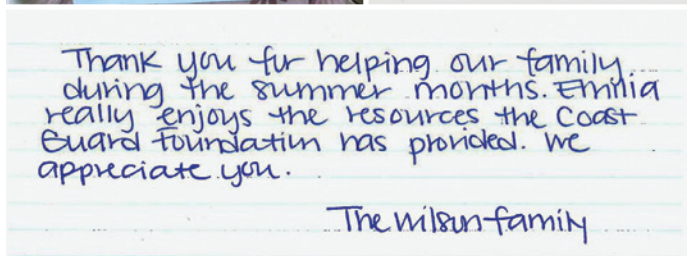 Thank you for helping our family
during the summer months. Emilia
really enjoys the resources the Coast
Guard Foundation has provided. We
appreciate you.
The Wilson family